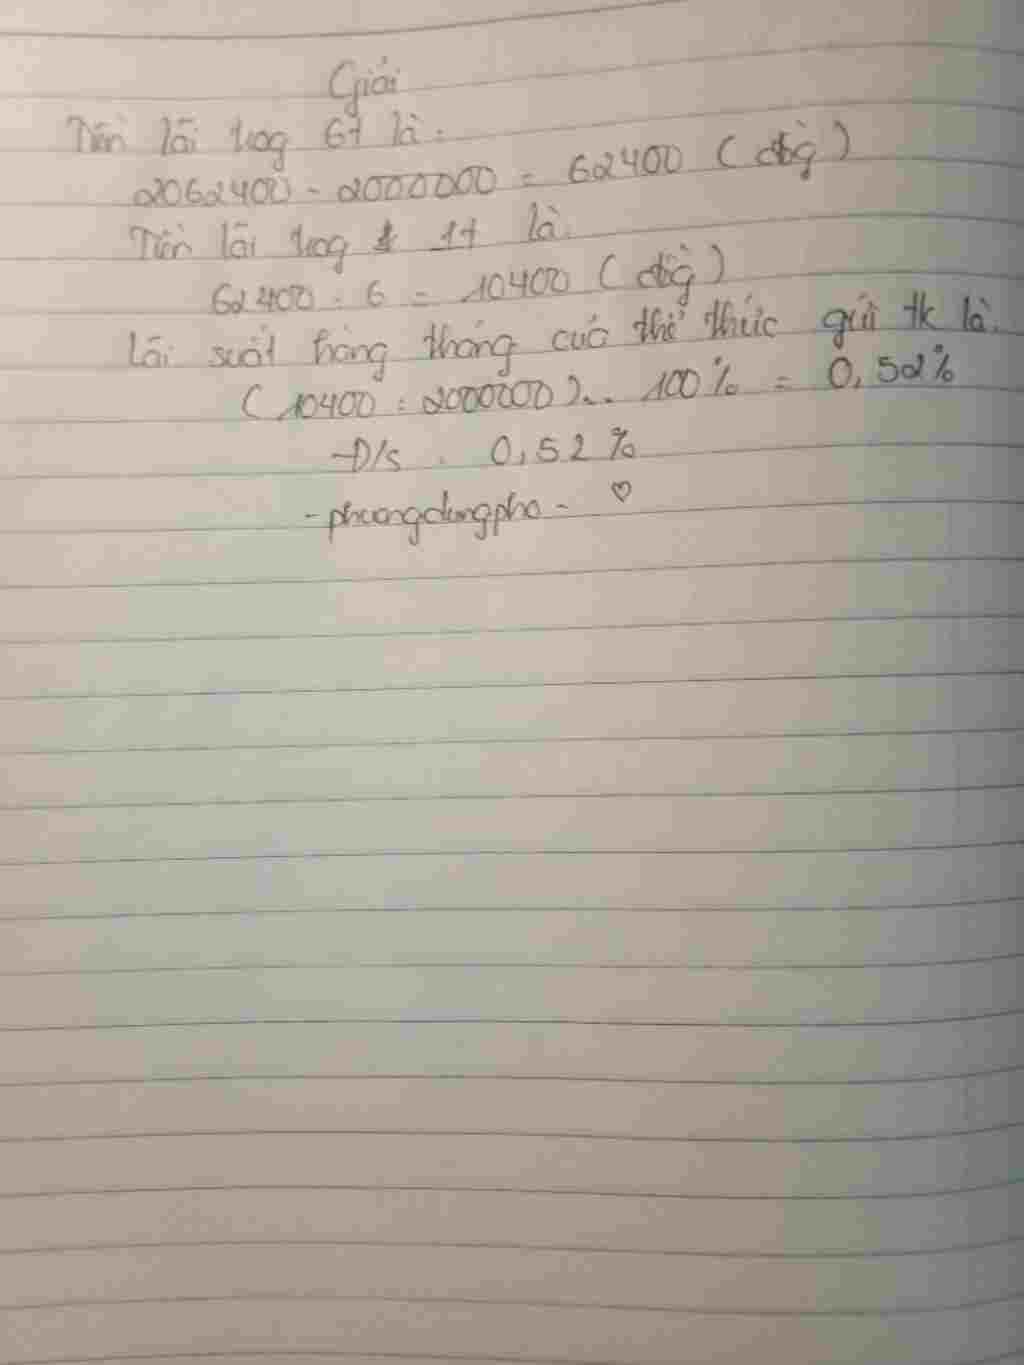 Giải
Tiền lãi trog 6t là:
2062400 - 2000000 = 62400 (đồg)
Tiền lãi trog 1t là:
62400 : 6 = 10400 (đồg)
Lãi suất hàng tháng của thể thức gửi tk là:
(10400 : 2000000) . 100% = 0,52%
Đ/s : 0,52%
- phuongdungpho - ♡